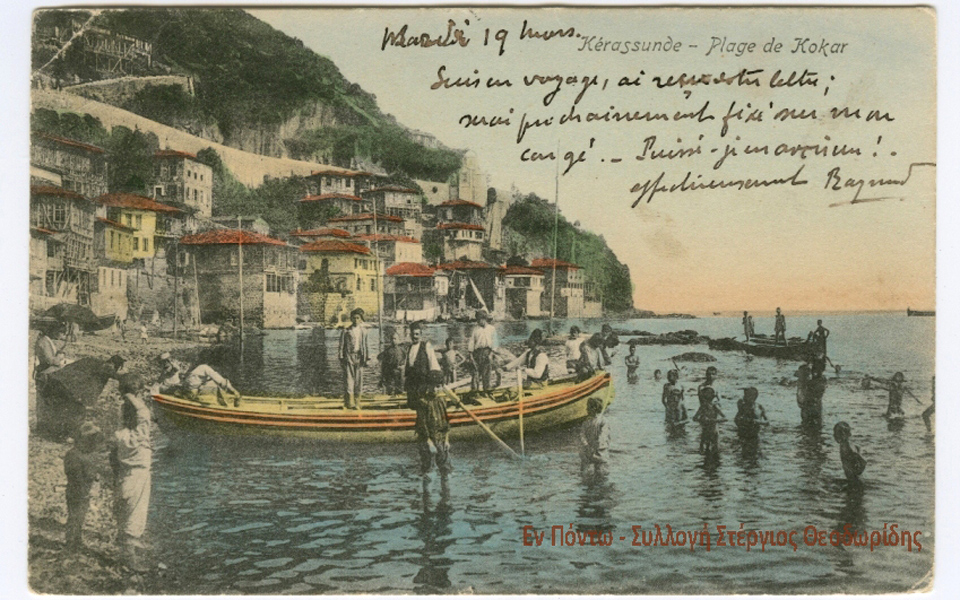 Mardi 19 mars.
Kérassunde - Plage de Kokar
Suis en voyage, ai lettre;
serai prochainement fixé sur mon
congé. _ Puissé-je en !.
affectueusement
Εν Πόντω - Συλλογή Στέργιος Θεοδωρίδης